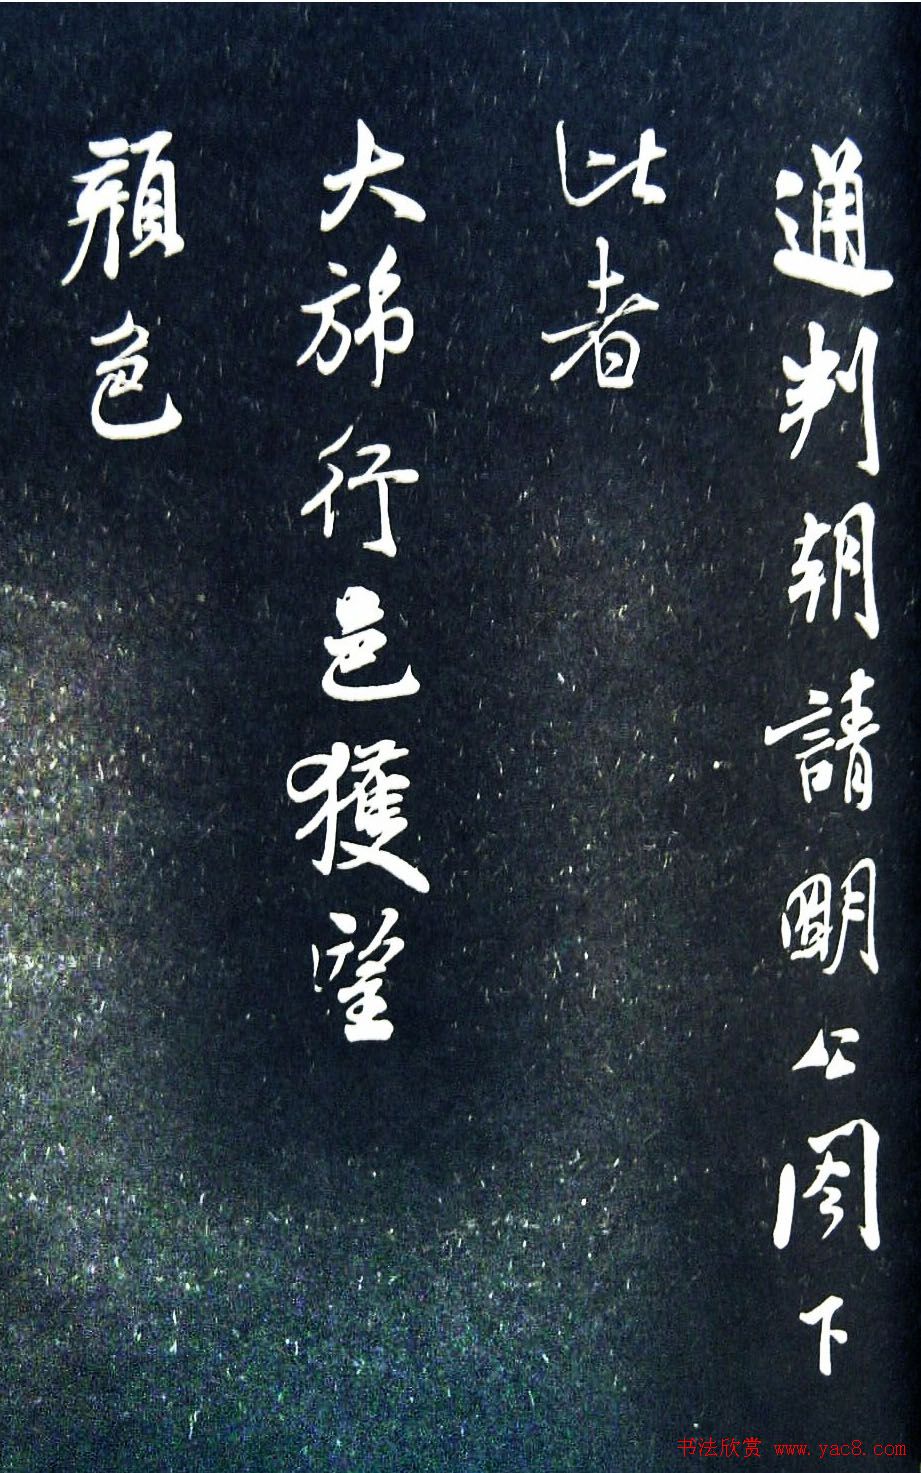 通判朝請明公閣下
比者
大旆行邑獲望
顏色
书法欣赏 www.yac8.com